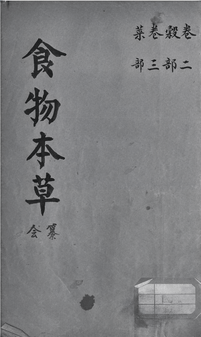 卷二
穀部
卷三
菜部
食物本草
会纂